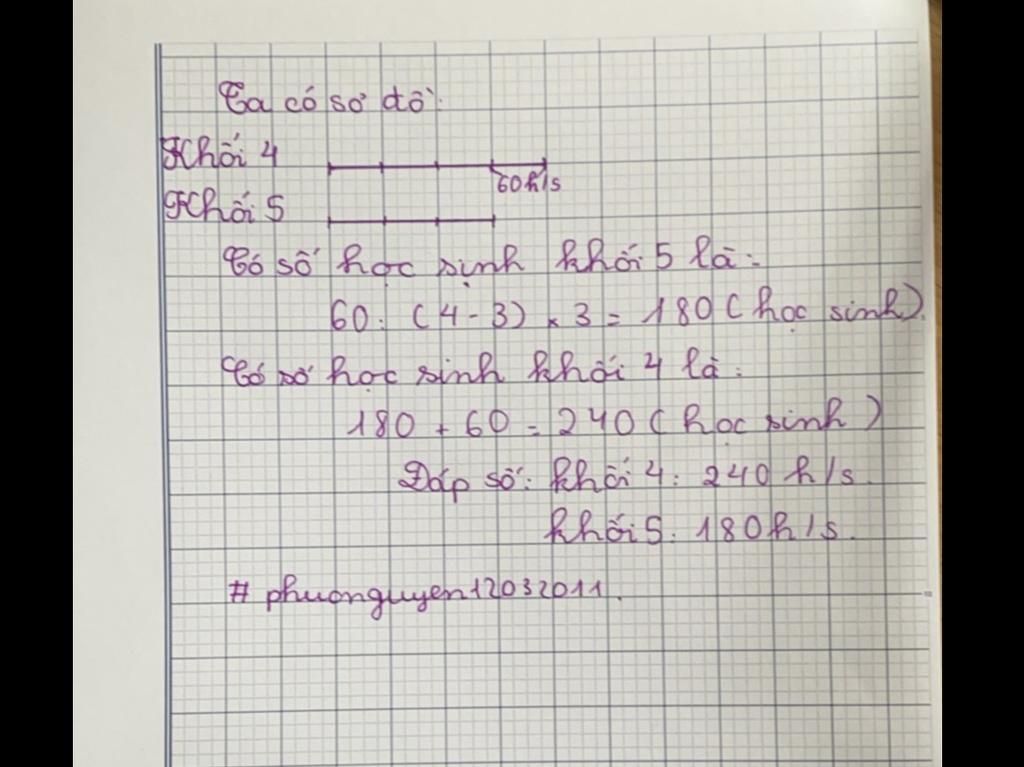 Ta có sơ đồ:
Khối 4
60h/s
Khối 5
Có số học sinh khối 5 là:
60: (4-3) x 3 = 180 (học sinh).
Có số học sinh khối 4 là:
180 + 60 = 240 (học sinh)
Đáp số: khối 4: 240 h/s.
khối 5: 180h/s.
# phuonguyen12032011.